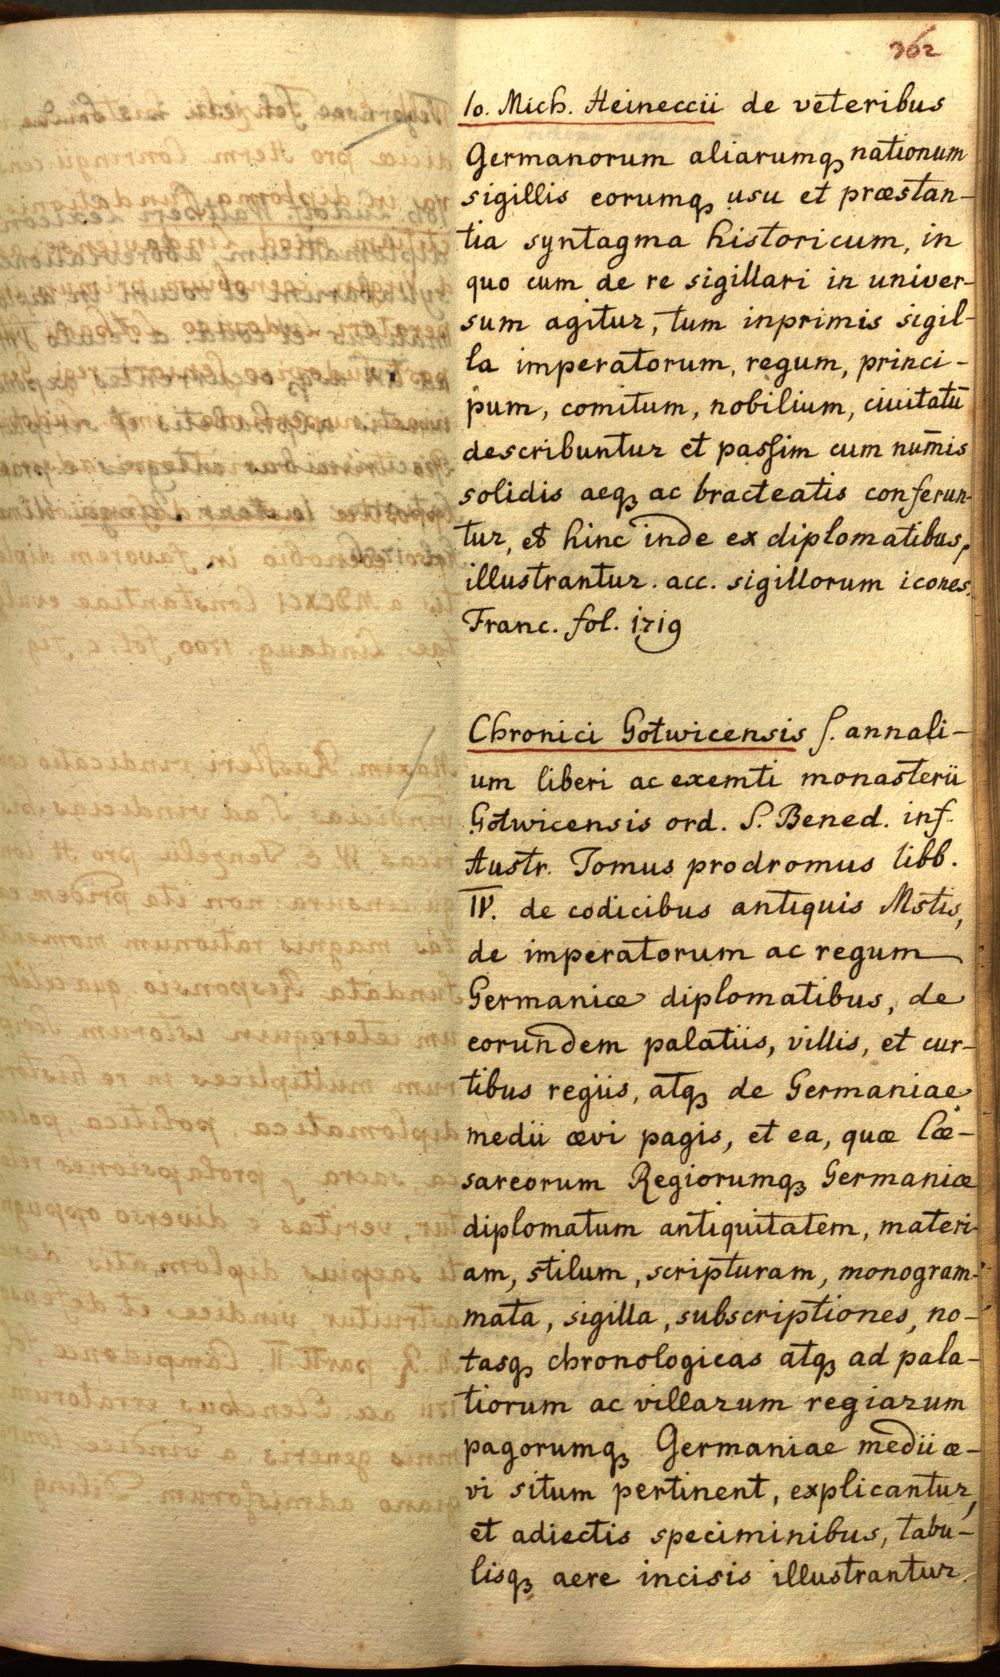 362
Io. Mich. Heineccii de veteribus
Germanorum aliarumq; nationum
sigillis eorumq; usu et præstan-
tia syntagma historicum, in
quo cum de re sigillari in univer-
sum agitur, tum inprimis sigil-
la imperatorum, regum, princi-
pum, comitum, nobilium, ciuitatū
describuntur et passim cum num̄is
solidis aeq; ac bracteatis conferun-
tur, et hinc inde ex diplomatibus,
illustrantur. acc. sigillorum icones.
Franc. fol. 1719
Chronici Gotwicensis s. annali-
um liberi ac exemti monasterii
Gotwicensis ord. S. Bened. inf.
Austr. Tomus prodromus libb.
IV. de codicibus antiquis Mstis,
de imperatorum ac regum
Germaniæ diplomatibus, de
eorundem palatiis, villis, et cur-
tibus regiis, atq; de Germaniae
medii ævi pagis, et ea, quæ Cæ-
sareorum Regiorumq; Germaniæ
diplomatum antiquitatem, materi-
am, stilum, scripturam, monogram-
mata, sigilla, subscriptiones, no-
tasq; chronologicas atq; ad pala-
tiorum ac villarum regiarum
pagorumq; Germaniae medii æ-
vi situm pertinent, explicantur,
et adiectis speciminibus, tabu-
lisq; aere incisis illustrantur.